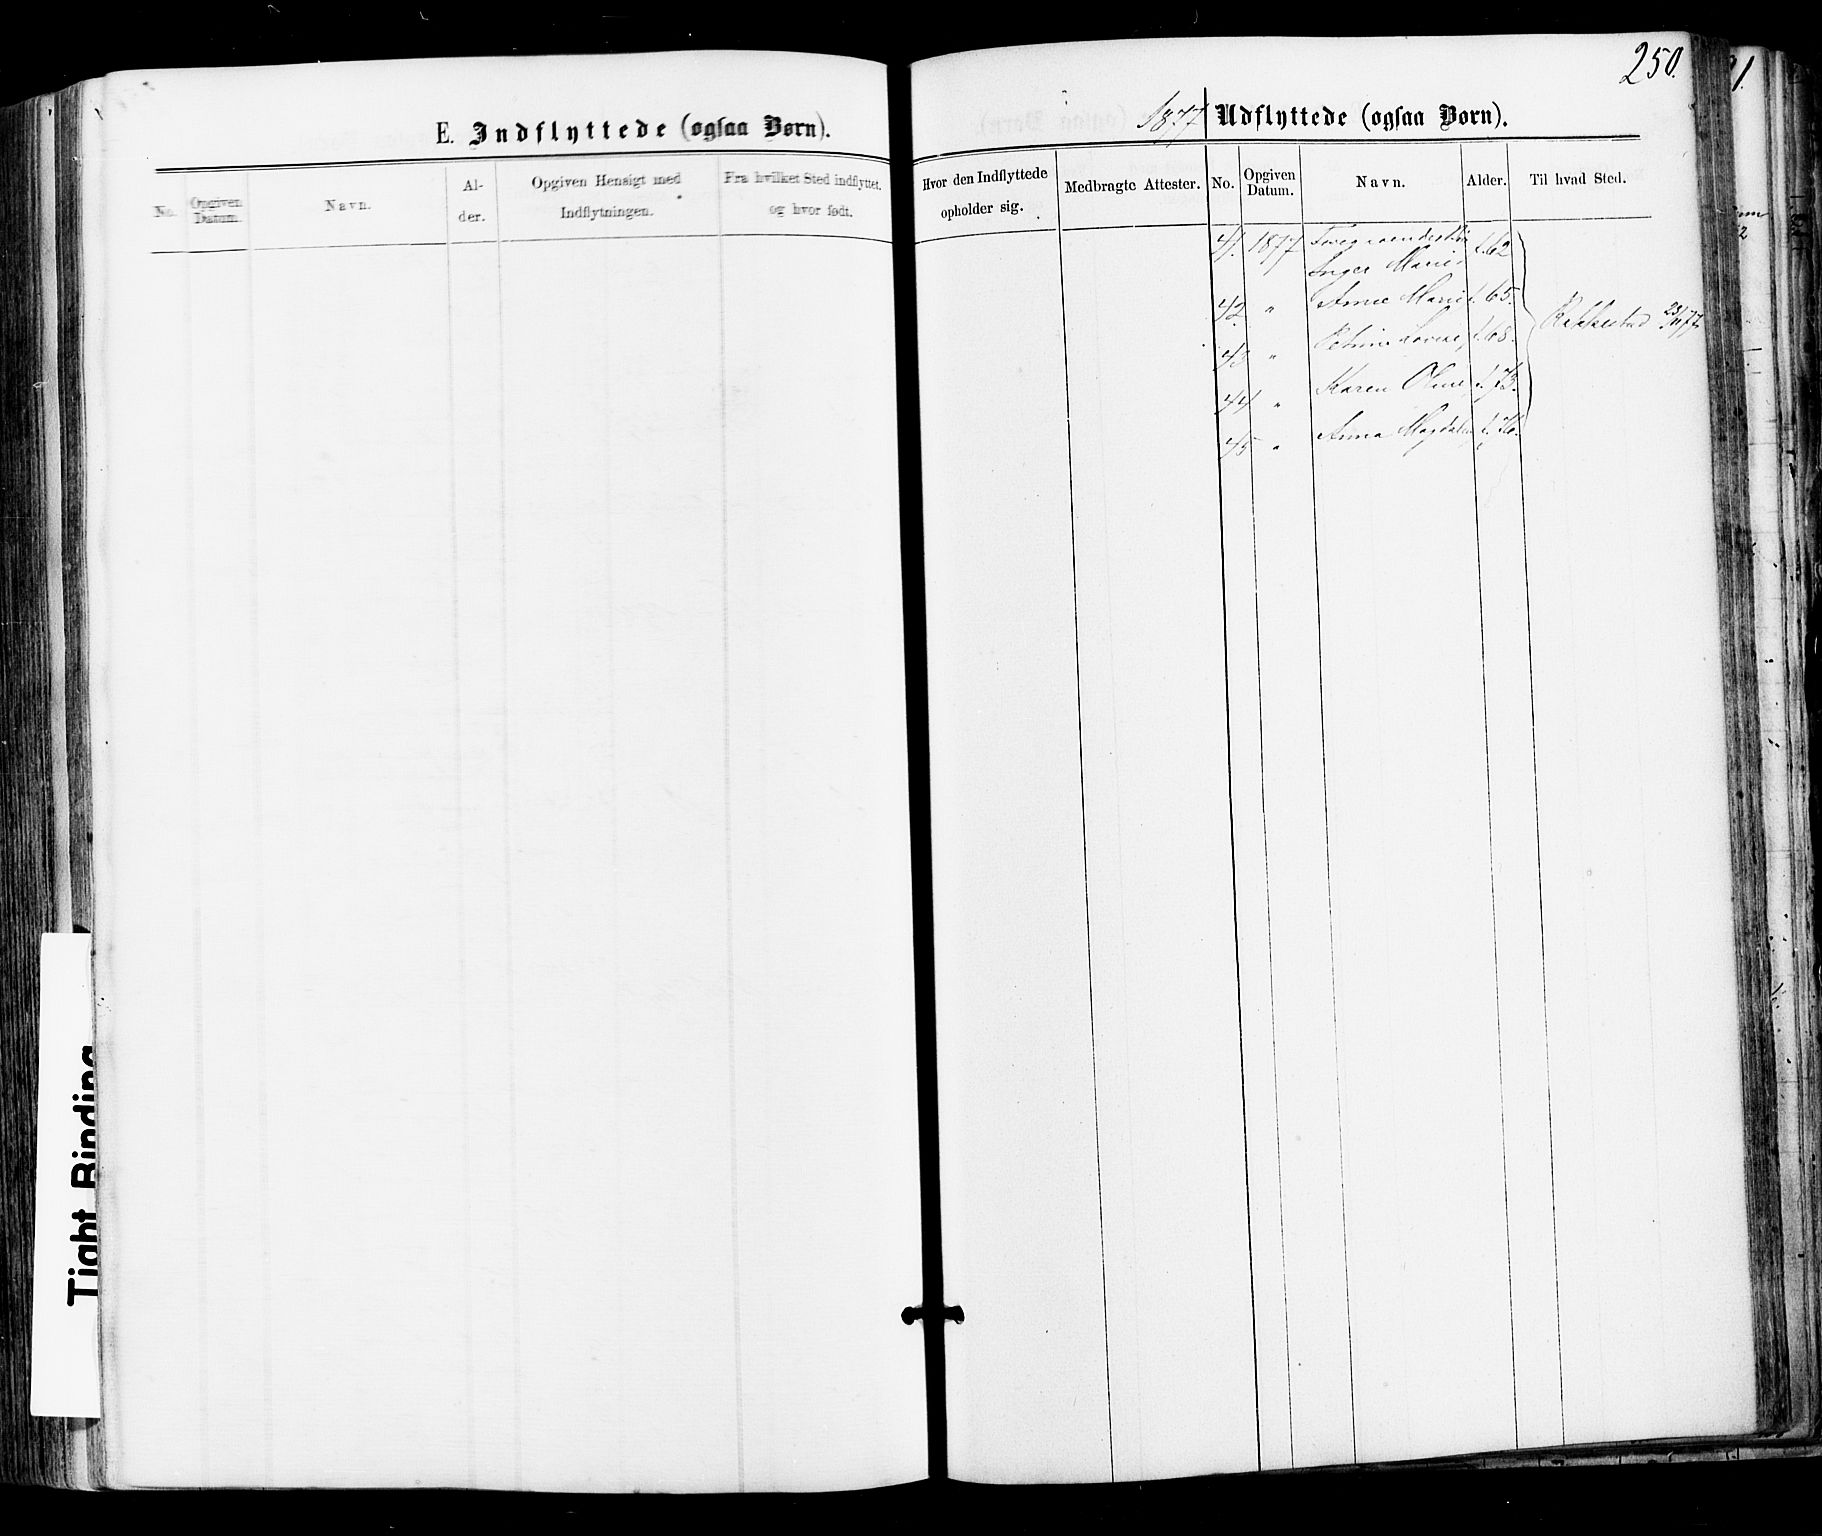 250.
E. Indflyttede (ogsaa Børn).
No.
Opgiven
Datum.
Navn.
Al-
der.
Opgiven Hensigt med
Indflytningen.
Fra hvilket Sted indflyttet.
og hvor født.
Hvor den Indflyttede
opholder sig.
Medbragte Attester.
1877
Udflyttede (ogsaa Børn).
No.
Opgiven
Datum.
Navn.
Alder.
Til hvad Sted.
41. 1877
Inger Marie f. 62
42. " Anne Marie f. 65.
43 " Petrine Lovise, f. 68.
44 " Karen Oline, f. 73.
45 " Anna Magdalene f. 76.
Rakkestad 23/11 77
Tight Binding